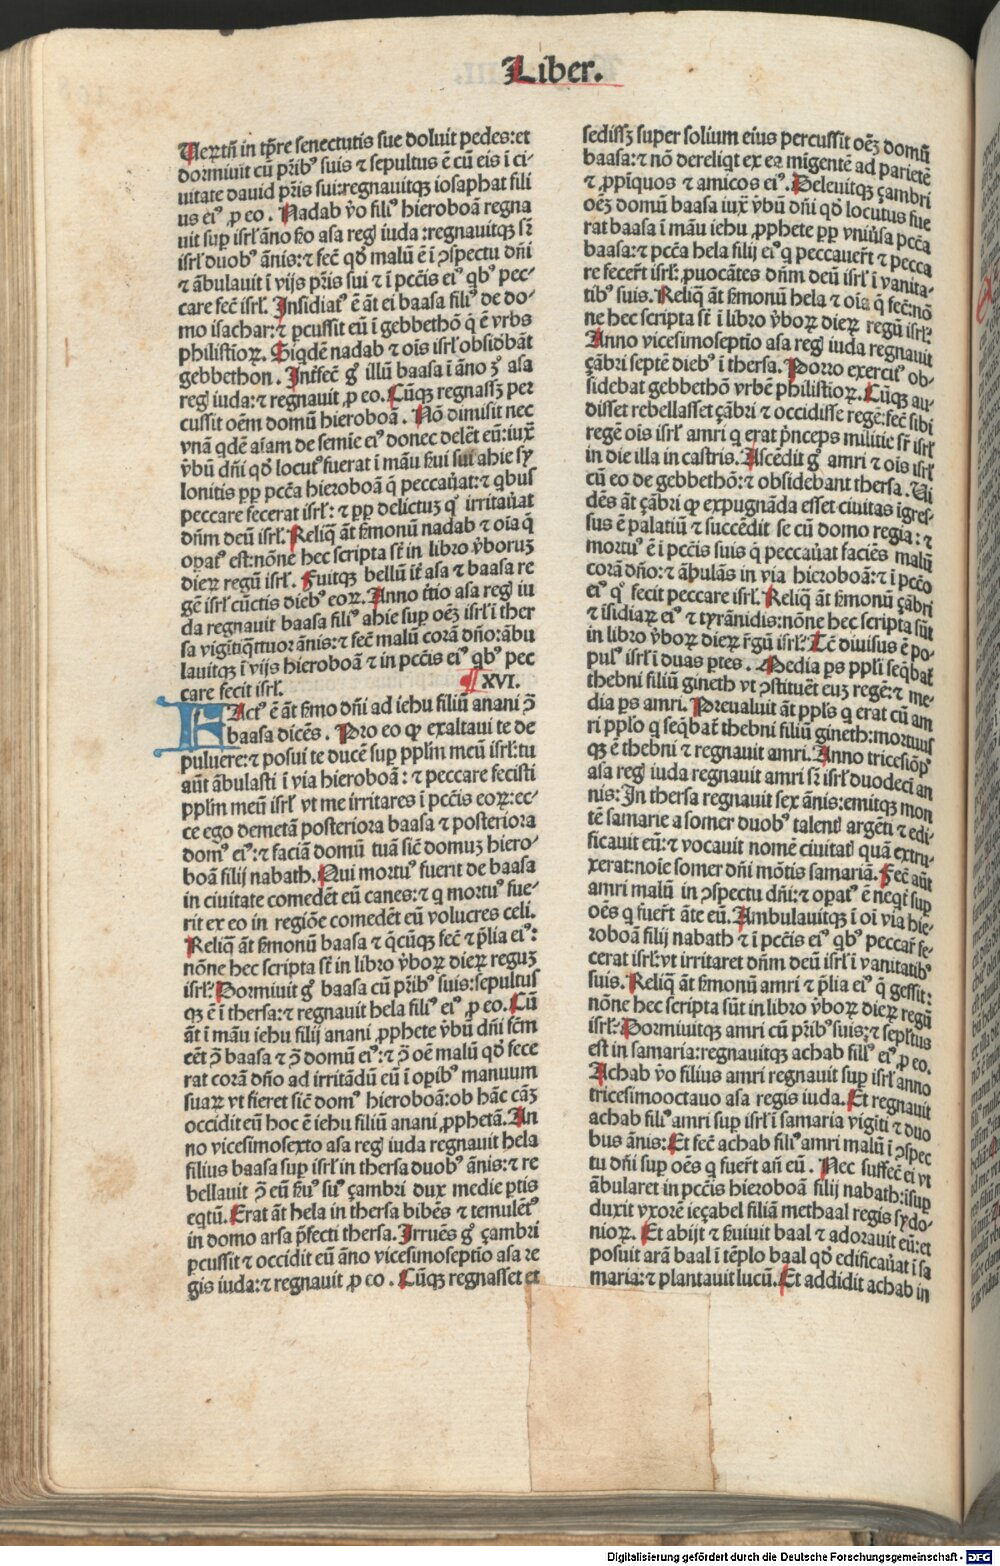 Liber.
Uerūtñ in tp̄re senectutis sue doluit pedes:et
dormiuit cū pr̄ib⁹ suis ⁊ sepultus ē cū eis ī ci-
uitate dauid pr̄is sui:regnauitqꝫ iosaphat fili
us ei⁹ ꝓ eo . Nadab v̄o fili⁹ hieroboā regna
uit sup isrl̄ āno ẜo asa regꝭ iuda :regnauitqꝫ sr̄
isrl̄ duob⁹ ānis:⁊ fec̄ qd̓ malū ē ī ꝯspectu dn̄i
⁊ ābulauit ī vijs pr̄is sui ⁊ ī pcc̄is ei⁹ qb⁹ pec-
care fec̄ isrl̄. Insidiat⁹ ē āt ei baasa fili⁹ de do-
mo isachar:⁊ ꝑcussit eū ī gebbethō q̄ ē vrbs
philistioꝝ. Siqdē nadab ⁊ oīs isrl̄ obsidebāt
gebbethon . Int̄fec̄ g̊ illū baasa ī āno ꝫ asa
regꝭ iuda:⁊ regnauit ꝓ eo. Cūqꝫ regnassꝫ per
cussit oēm domū hieroboā . Nō dimisit nec
vnā qdē aīam de semīe ei⁹ donec delēt eū:iuxͭ
v̄bū dn̄i qd̓ locut⁹ fuerat ī māu ẜui sui ahie sy
lonitis ꝓp pcc̄a hieroboā q̄ peccau̓at:⁊ qbus
peccare fecerat isrl̄: ⁊ ꝓp delictuꝫ q̊ irritau̓at
dn̄m deū isrl̄. Reliq̄ āt ẜmonū nadab ⁊ oīa q̄
opat⁹ est:nōne hec scripta st̄ in libro v̄boruꝫ
dieꝝ regū isrl̄. Fuitqꝫ bellū īt̓ asa ⁊ baasa re
gē isrl̄ cūctis dieb⁹ eoꝝ. Anno t̓tio asa regꝭ iu
da regnauit baasa fili⁹ ahie sup oēꝫ isrl̄ ī ther
sa vigītiqͣttuor ānis:⁊ fec̄ malū corā dn̄o:ābu
lauitqꝫ ī vijs hieroboā ⁊ in pcc̄is ei⁹ qb⁹ pec
care fecit isrl̄. XVI.
FAct⁹ ē āt ẜmo dn̄i ad iehu filiū anani ꝯ̄
baasa dicēs . Pro eo ꝙ exaltaui te de
puluere:⁊ posui te ducē sup pplm̄ meū isrl̄:tu
aūt ābulasti ī via hieroboā : ⁊ peccare fecisti
pplm̄ meū isrl̄ vt me irritares ī pcc̄is eoꝝ:ec-
ce ego demetā posteriora baasa ⁊ posteriora
dom⁹ ei⁹:⁊ faciā domū tuā sic̄ domuꝫ hiero-
boā filij nabath. Qui mortu⁹ fuerit de baasa
in ciuitate comedēt eū canes:⁊ q mortu⁹ fue-
rit ex eo in regiōe comedēt eū volucres celi.
Reliq̄ āt ẜmonū baasa ⁊ q̄cūqꝫ fec̄ ⁊ p̄lia ei⁹:
nōne hec scripta st̄ in libro v̄boꝝ dieꝝ reguꝫ
isrl̄. Dormiuit g̊ baasa cū pr̄ib⁹ suis:sepultus
qꝫ ē ī thersa:⁊ regnauit hela fili⁹ ei⁹ ꝓ eo. Cū
āt ī māu iehu filij anani ꝓphete v̄bū dn̄i fc̄m
eēt ꝯ̄ baasa ⁊ ꝯ̄ domū ei⁹:⁊ ꝯ̄ oē malū qd̓ fece
rat corā dn̄o ad irritādū eū ī opib⁹ manuum
suaꝝ vt fieret sic̄ dom⁹ hieroboā:ob hāc cāꝫ
occidit eū hoc ē iehu filiū anani ꝓphetā. An
no vicesimosexto asa regꝭ iuda regnauit hela
filius baasa sup isrl̄ in thersa duob⁹ ānis:⁊ re
bellauit ꝯ̄ eū ẜu⁹ su⁹ çambri dux medie ꝑtis
eqtū. Erat āt hela in thersa bibēs ⁊ temulēt⁹
in domo arsa p̄fecti thersa. Irruēs g̊ çambri
ꝑcussit ⁊ occidit eū āno vicesimoseptīo asa re
gis iuda:⁊ regnauit ꝓ eo . Cūqꝫ regnasset et
sedissꝫ super solium eius percussit oēꝫ domū
baasa:⁊ nō dereliqt ex ea mīgentē ad parietē
⁊ ꝓpīquos ⁊ amicos ei⁹. Deleuitqꝫ çambri
oēꝫ domū baasa iuxͭ v̄bū dn̄i qd̓ locutus fue
rat baasa ī māu iehu ꝓphete ꝓp vniu̓sa pcc̄a
baasa:⁊ pcc̄a hela filij ei⁹ q peccauer̄t ⁊ pecca
re fecer̄t isrl̄: ꝓuocātes dn̄m deū isrl̄ ī vanita-
tib⁹ suis. Reliq̄ āt ẜmonū hela ⁊ oīa q̄ fec̄:nō
ne hec scripta st̄ ī libro v̄boꝝ dieꝝ regū isrl̄:
Anno vicesimoseptīo asa regꝭ iuda regnauit
çābri septē dieb⁹ ī thersa. Porro exercit⁹ ob-
sidebat gebbethō vrbē philistioꝝ. Cūqꝫ au-
disset rebellasset çābri ⁊ occidisse regē:fec̄ sibi
regē oīs isrl̄ amri q erat p̄nceps militie sr̄ isrl̄
in die illa in castris. Ascēdit g̊ amri ⁊ oīs isrl̄
cū eo de gebbethō:⁊ obsidebant thersa. Ui
dēs āt çābri ꝙ expugnāda esset ciuitas īgres-
sus ē palatiū ⁊ succēdit se cū domo regia: ⁊
mortu⁹ ē ī pcc̄is suis q̄ peccau̓at faciēs malū
corā dn̄o:⁊ ābulās in via hieroboā:⁊ ī pcc̄o
ei⁹ q̊ fecit peccare isrl̄. Reliq̄ āt ẜmonū çābri
⁊ īsidiaꝝ ei⁹ ⁊ tyrānidis:nōne hec scripta sūt
in libro v̄boꝝ dieꝝ r̄gū isrl̄. Tc̄ diuisus ē po-
pul⁹ isrl̄ ī duas ꝑtes . Media ps ppl̄i seq̄bat̄
thebni filiū gineth vt ꝯstituēt euꝫ regē:⁊ me-
dia ps amri. Preualuit āt ppl̄s q erat cū am
ri ppl̄o q seq̄bat̄ thebni filiū gineth:mortuus
qꝫ ē thebni ⁊ regnauit amri. Anno tricesiōp̊
asa regꝭ iuda regnauit amri sr̄ isrl̄ duodecī an
nis: In thersa regnauit sex ānis:emitqꝫ mon
tē samarie a somer duob⁹ talentꝭ argēti ⁊ edi-
ficauit eū:⁊ vocauit nomē ciuitatꝭ quā extru-
xerat:noīe somer dn̄i mōtis samariā. Fec̄ aūt
amri malū in ꝯspectu dn̄i:⁊ opat⁹ ē neqt̓ sup
oēs q fuer̄t āte eū. Ambulauitqꝫ ī oī via hie-
roboā filij nabath ⁊ ī pcc̄is ei⁹ qb⁹ peccar̄ fe-
cerat isrl̄:vt irritaret dn̄m deū isrl̄ ī vanitatib⁹
suis. Reliq̄ āt ẜmonū amri ⁊ p̄lia ei⁹ q̄ gessit:
nōne hec scripta sūt in libro v̄boꝝ dieꝝ regū
isrl̄. Dormiuitqꝫ amri cū pr̄ib⁹ suis:⁊ sepl̄tus
est in samaria:regnauitqꝫ achab fili⁹ ei⁹ ꝓ eo.
Achab v̄o filius amri regnauit sup isrl̄ anno
tricesimooctauo asa regis iuda. Et regnauit
achab fili⁹ amri sup isrl̄ ī samaria vigīti ⁊ duo
bus ānis: Et fec̄ achab fili⁹ amri malū ī ꝯspec
tu dn̄i sup oēs q fuer̄t an̄ eū . Nec suffec̄ ei vt
ābularet in pcc̄is hieroboā filij nabath:īsup
duxit vxorē ieçabel filiā methaal regis sydo-
nioꝝ. Et abijt ⁊ ẜuiuit baal ⁊ adorauit eū:et
posuit arā baal ī tēplo baal qd̓ edificau̓at ī sa
maria:⁊ plantauit lucū. Et addidit achab in
Digitalisierung gefördert durch die Deutsche Forschungsgemeinschaft - DFG